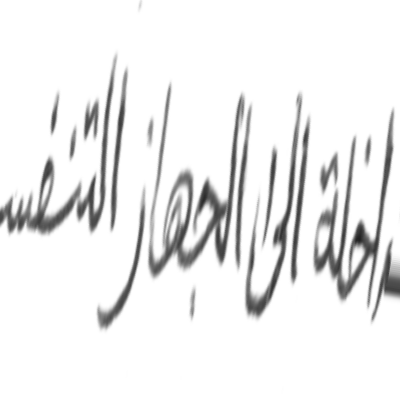 داخلة الى الجهاز التنفس